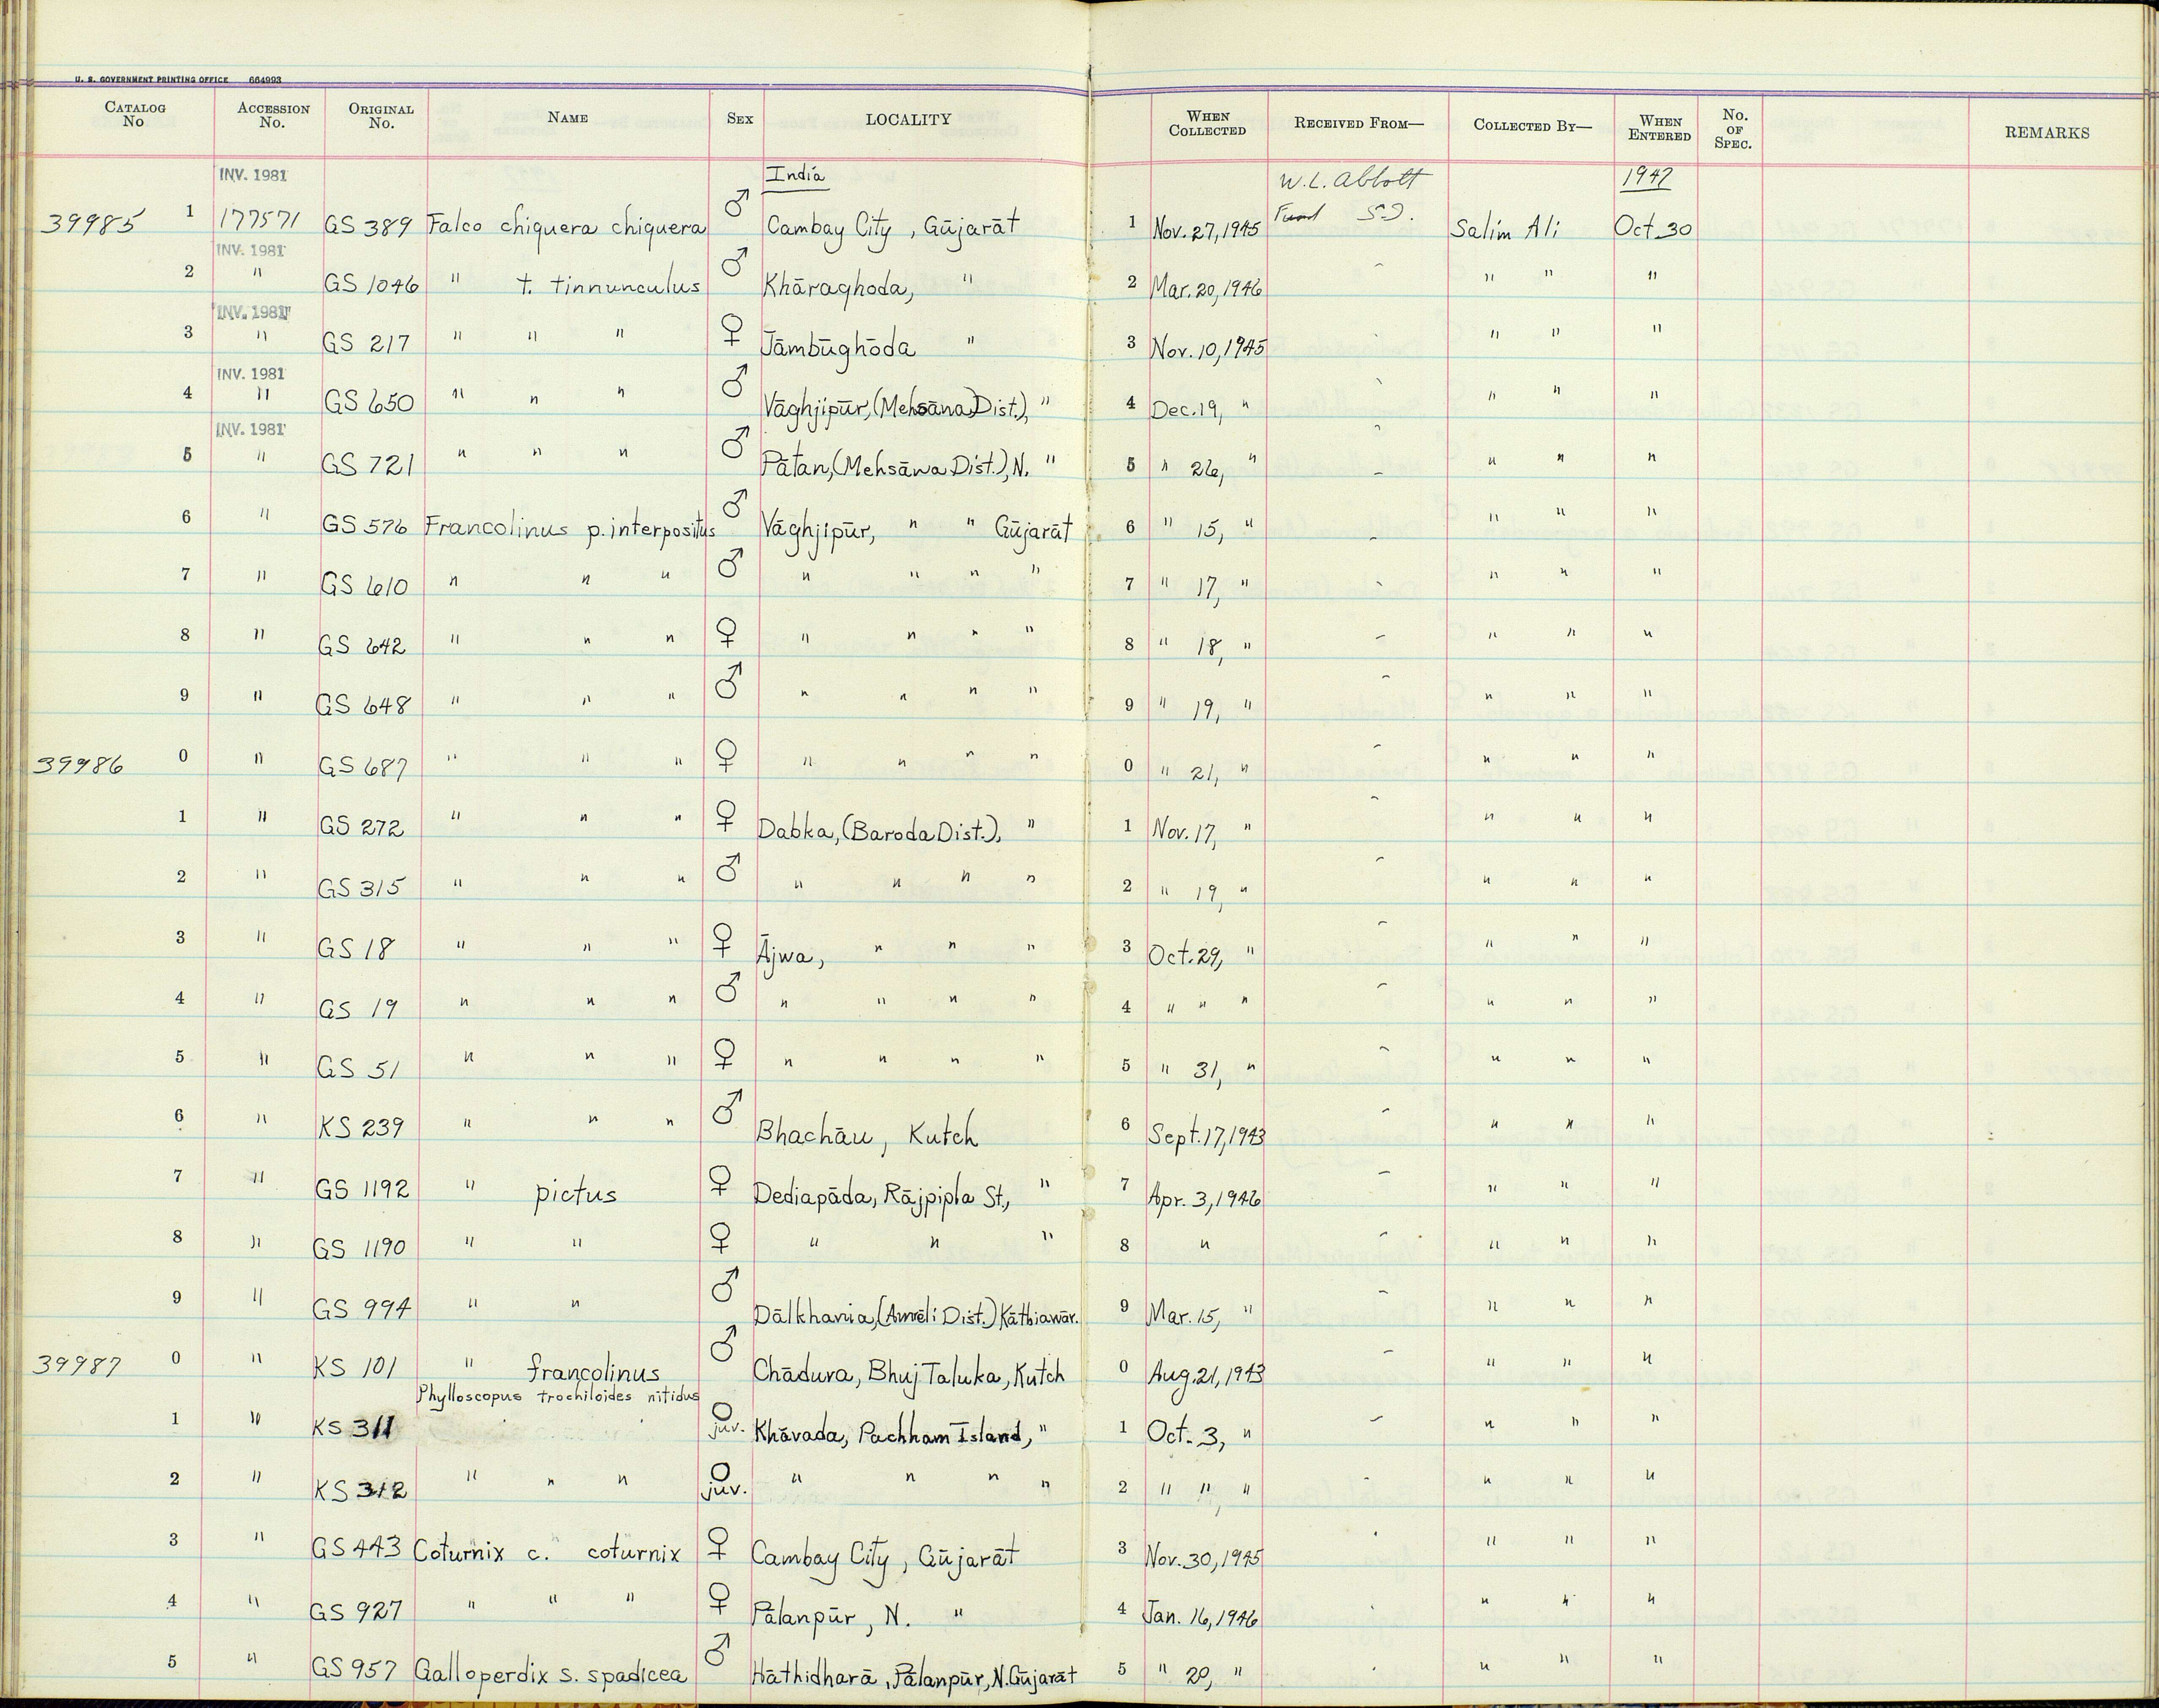 U. S. GOVERNMENT PRINTING OFFICE 664993
CATALOG No ACCESSION No. ORIGINAL No. NAME SEX LOCALITY WHEN COLLECTED RECEIVED FROM— COLLECTED BY— WHEN ENTERED No. OF SPEC. REMARKS
INV. 1981 India W. L. Abbott 1947
39985 1 177571 GS 389 Falco chiquera chiquera ♂ Cambay City, Gūjarāt 1 Nov. 27, 1945 Fund S.I. Salim Ali Oct. 30
INV. 1981
2 " GS 1046 " t. tinnunculus ♂ Khāraghoda, " 2 Mar. 20, 1946 " " "
INV. 1981
3 " GS 217 " " " ♀ Jāmbūghōda " 3 Nov. 10, 1945 " " "
INV. 1981
4 " GS 650 " " " ♂ Vāghjipūr, (Mehsāna Dist.), " 4 Dec. 19, " " " "
INV. 1981
5 " GS 721 " " " ♂ Pātan, (Mehsāna Dist.), N. " 5 " 26, " " " "
6 " GS 576 Francolinus p. interpositus ♂ Vāghjipūr, " " Gūjarāt 6 " 15, " " " "
7 " GS 610 " " " ♂ " " " " 7 " 17, " " " "
8 " GS 642 " " " ♀ " " " " 8 " 18, " " " "
9 " GS 648 " " " ♂ " " " " 9 " 19, " " " "
39986 0 " GS 687 " " " ♀ " " " " 0 " 21, " " " "
1 " GS 272 " " " ♀ Dabka, (Baroda Dist.), " 1 Nov. 17, " " " "
2 " GS 315 " " " ♂ " " " " 2 " 19, " " " "
3 " GS 18 " " " ♀ Ājwa, " " " 3 Oct. 29, " " " "
4 " GS 19 " " " ♂ " " " " 4 " " " " " "
5 " GS 51 " " " ♀ " " " " 5 " 31, " " " "
6 " KS 239 " " " ♂ Bhachāu, Kutch 6 Sept. 17, 1943 " " "
7 " GS 1192 " pictus ♀ Dediapāda, Rājpipla St., " 7 Apr. 3, 1946 " " "
8 " GS 1190 " " ♀ " " " 8 " " " "
9 " GS 994 " " ♂ Dālkhania, (Amrēli Dist.) Kāthiawār. 9 Mar. 15, " " " "
39987 0 " KS 101 " francolinus ♂ Chādura, Bhuj Taluka, Kutch 0 Aug. 21, 1943 " " "
Phylloscopus trochiloides nitidus
1 " KS 311 O juv. Khāvada, Pachham Island, " 1 Oct. 3, " " " "
2 " KS 312 " " " O juv. " " " " 2 " ", " " " "
3 " GS 443 Coturnix c. coturnix ♀ Cambay City, Gūjarāt 3 Nov. 30, 1945 " " "
4 " GS 927 " " " ♀ Pālanpūr, N. " 4 Jan. 16, 1946 " " "
5 " GS 957 Galloperdix s. spadicea ♂ Hāthidharā, Pālanpūr, N. Gūjarāt 5 " 20, " " " "